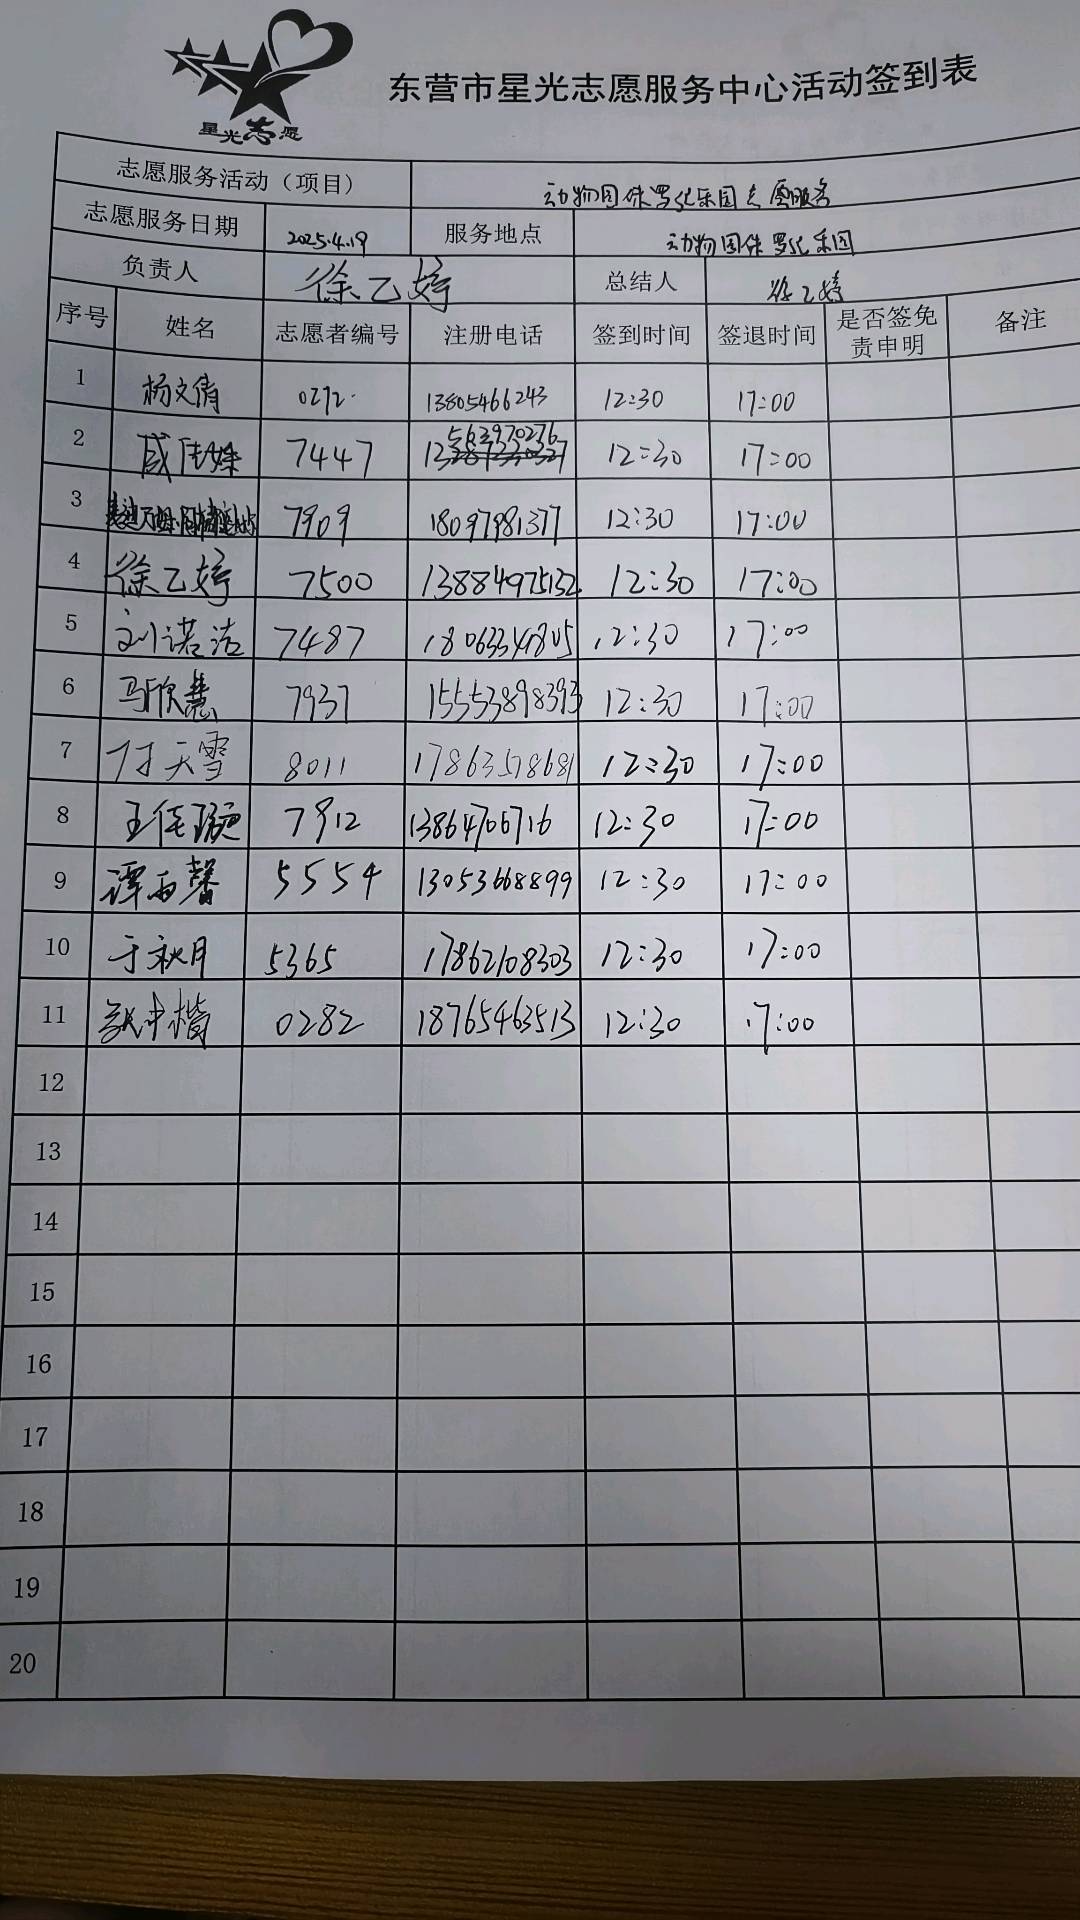 星光志愿
东营市星光志愿服务中心活动签到表
志愿服务活动（项目） 动物园侏罗纪乐园志愿服务
志愿服务日期 2025.4.19 服务地点 动物园侏罗纪乐园
负责人 徐乙婷 总结人 徐乙婷
序号 姓名 志愿者编号 注册电话 签到时间 签退时间 是否签免责申明 备注
1 杨文倩 0272 13805466243 12:30 17:00
2 7447 12:30 17:00
3 7909 18097981377 12:30 17:00
4 徐乙婷 7500 13884975132 12:30 17:00
5 刘诺洁 7487 12:30 17:00
6 马欣慧 7937 15553898393 12:30 17:00
7 付天雪 8011 17863578681 12:30 17:00
8 7912 13864706716 12:30 17:00
9 谭雨馨 5554 13053668899 12:30 17:00
10 于秋月 5365 17862108303 12:30 17:00
11 0282 18765463513 12:30 17:00
12
13
14
15
16
17
18
19
20